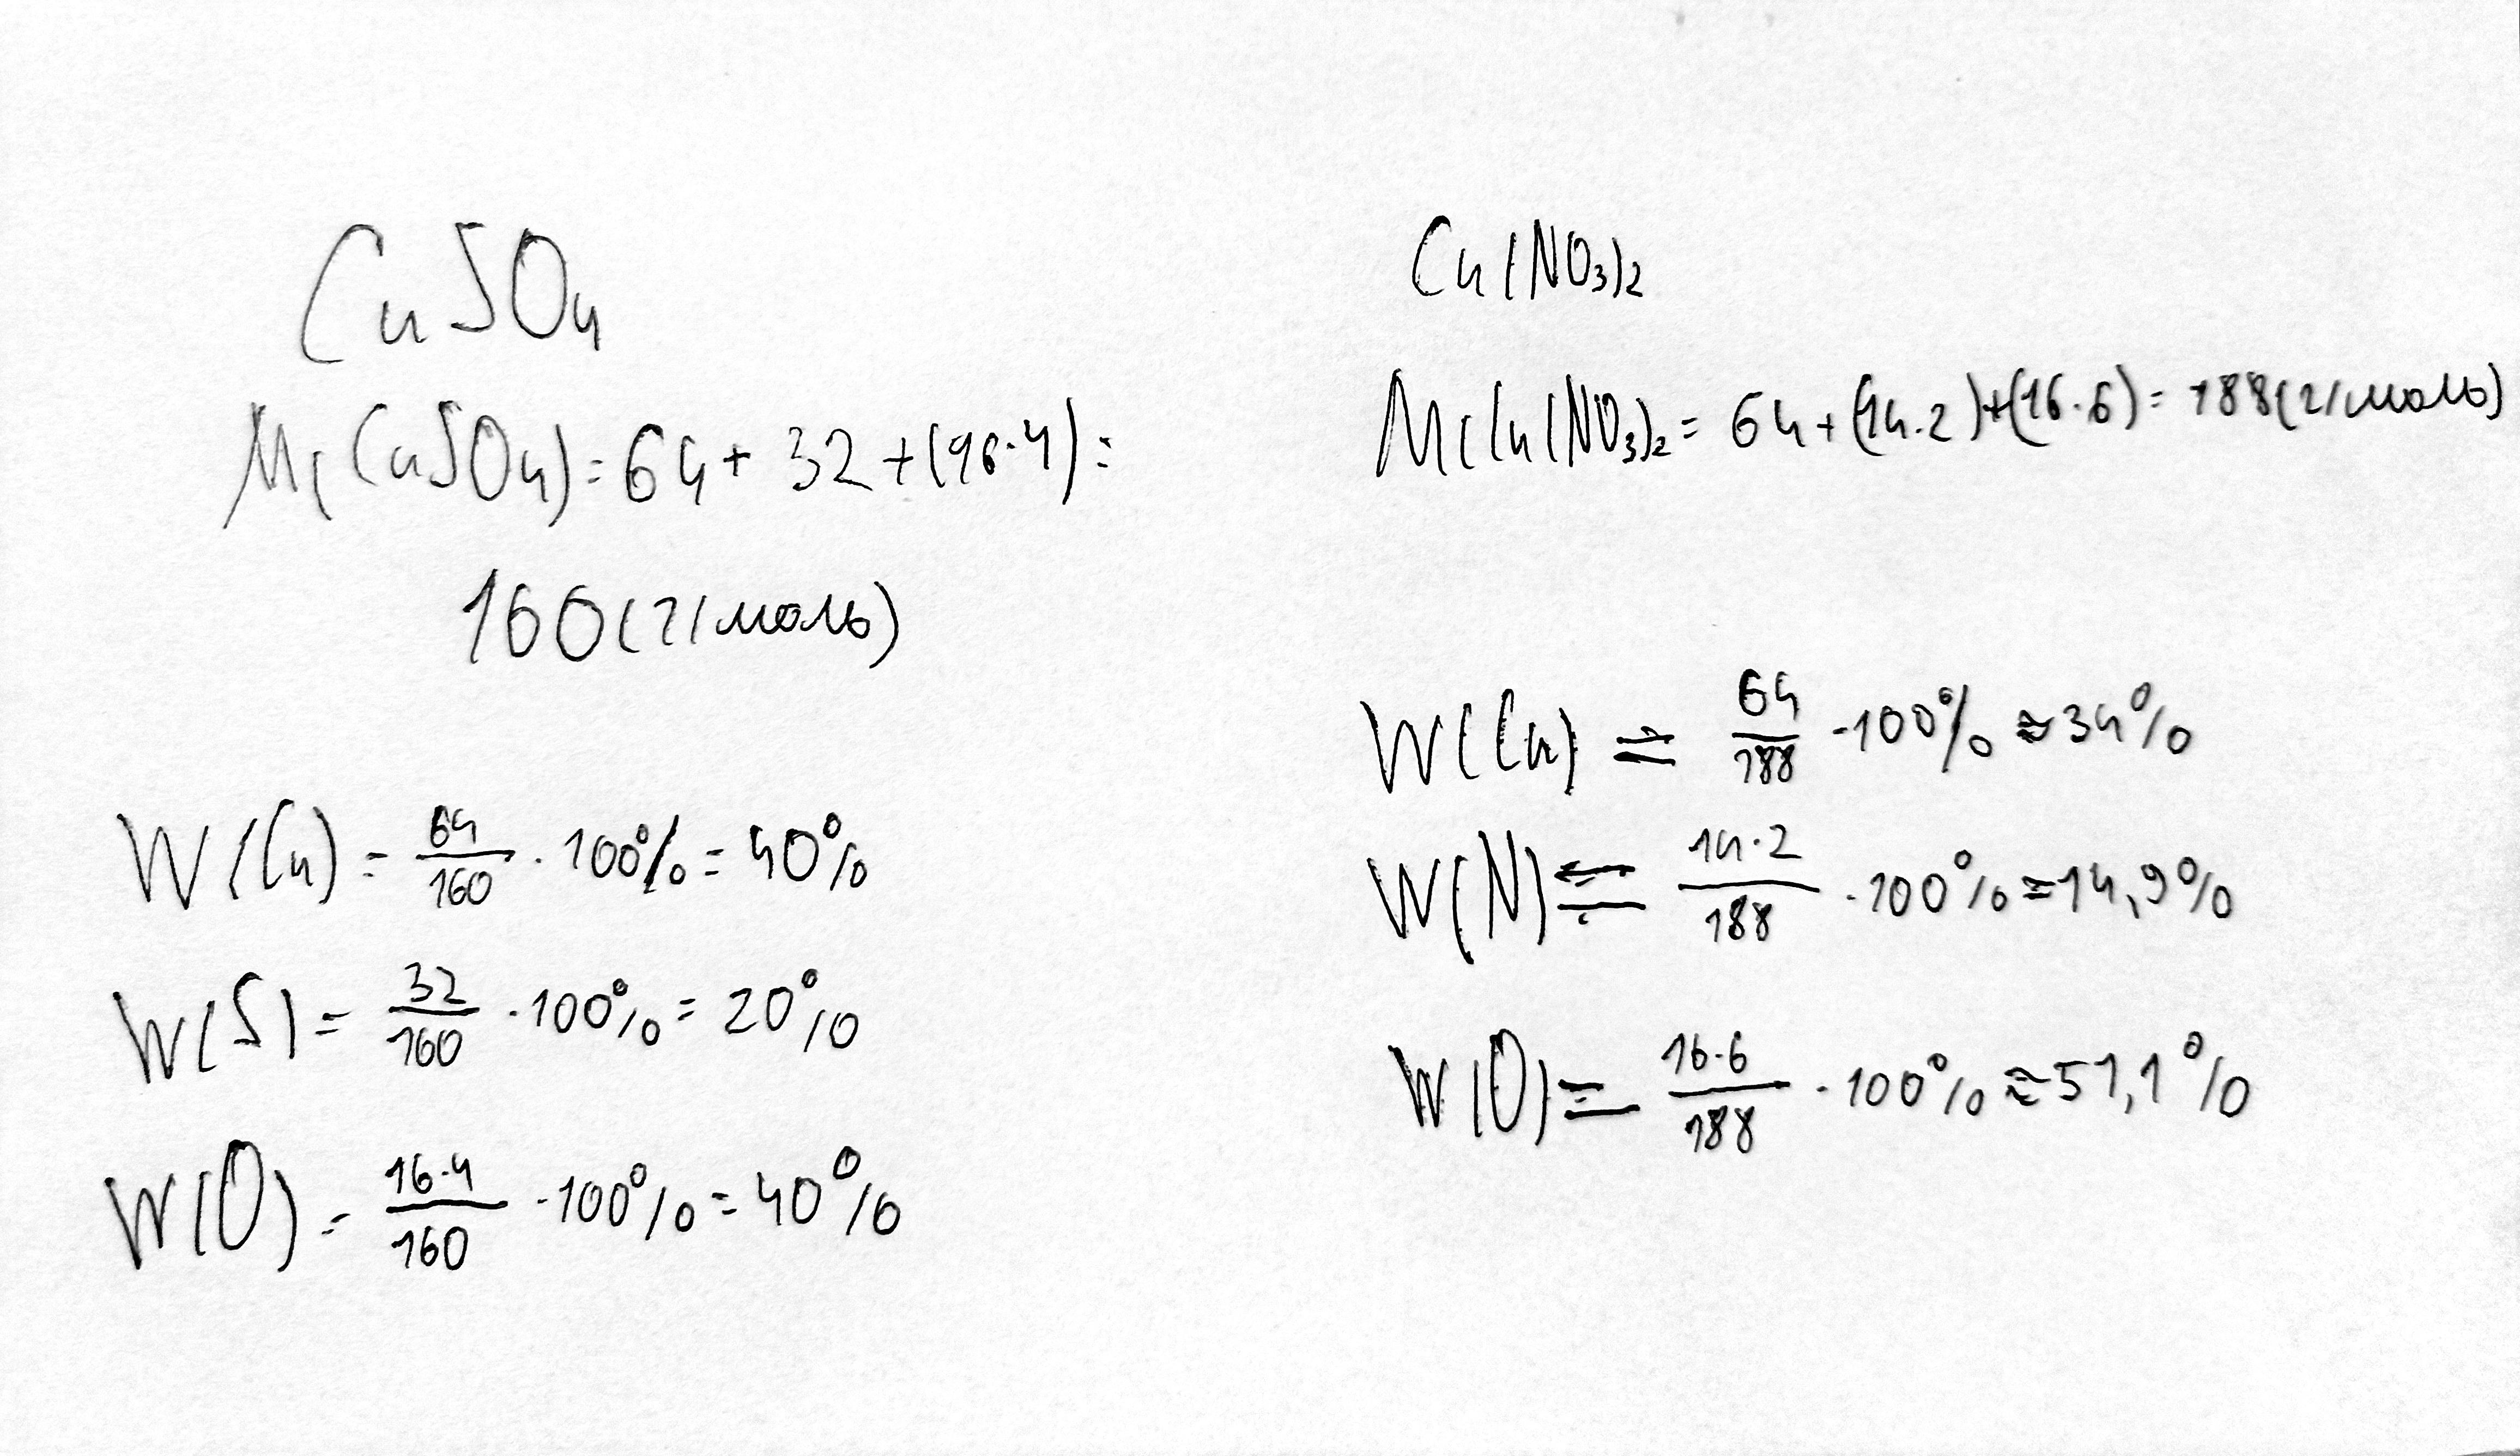 CuSO₄
M(CuSO₄) = 64 + 32 + (16·4) =
160 (г/моль)
W(Cu) = 64/160 · 100% = 40%
W(S) = 32/160 · 100% = 20%
W(O) = 16·4/160 · 100% = 40%
Cu(NO₃)₂
M(Cu(NO₃)₂ = 64 + (14·2) + (16·6) = 188 (г/моль)
W(Cu) = 64/188 · 100% ≈ 34%
W(N) = 14·2/188 · 100% ≈ 14,9%
W(O) = 16·6/188 · 100% ≈ 51,1%